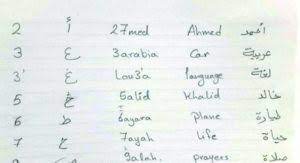 2 أ 27med Ahmed أحمد
3 ع 3arabia Car عربية
3' غ Lou3a language لغة
5 خ 5alid Khalid خالد
6 ط 6ayara plane طيارة
7 ح 7ayah life حياة
9alah prayers صلاة